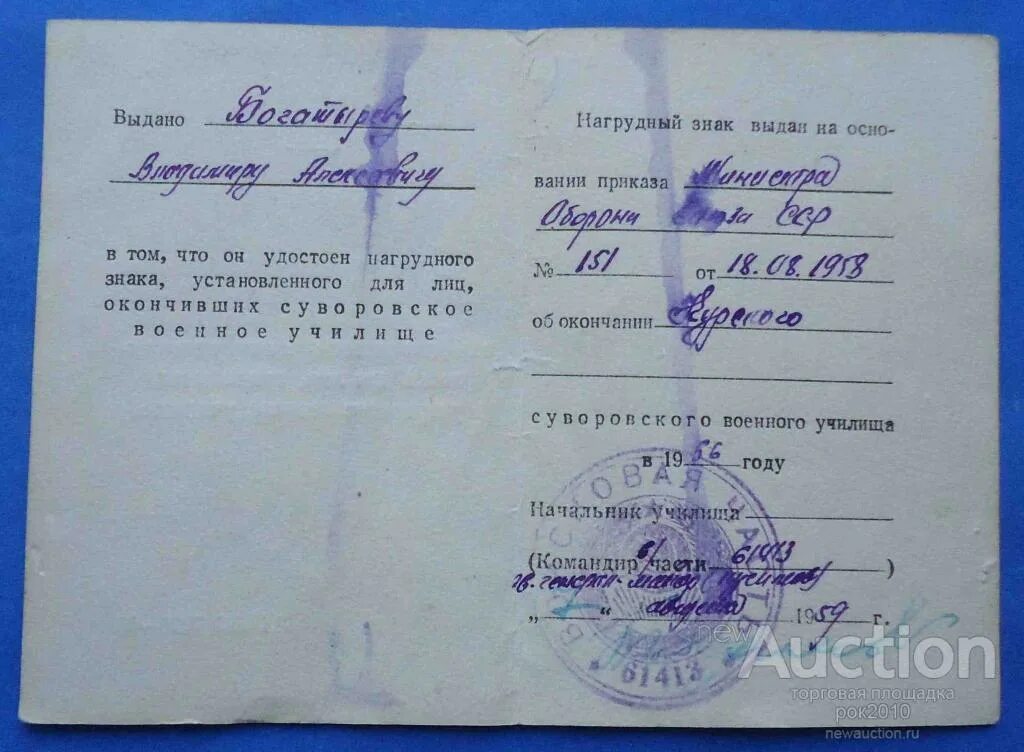 Выдано Богатыреву
Владимиру Алексеевичу
в том, что он удостоен нагрудного
знака, установленного для лиц,
окончивших суворовское
военное училище
Нагрудный знак выдан на осно-
вании приказа Министра
Оборони Союза ССР
№ 151 от 18.08.1958
об окончании Курского
суворовского военного училища
в 1956 году
Начальник училища
(Командир в/части 61413)
гв. генерал-майор
„ “ августа 1959 г.
ВОЙСКОВАЯ ЧАСТЬ
* 61413 *
newAuction
торговая площадка
рок2010
newauction.ru